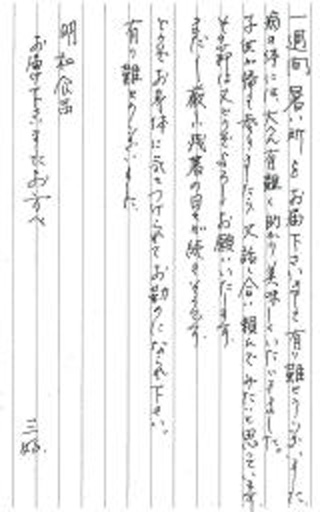 一週間暑い所をお届下さいまして有り難とうございました。
病の体には、大へん有難く助かり美味しくいただきました。
子供が帰って参りましたら又話し合い頼んでみたいと思っています
その節は又どうぞよろしくお願いいたします。
まだ厳しい残暑の日々が続きそうです。
どうぞお身体に気をつけられてお勤めになられ下さい。
有り難とうございました。
明和食品
お届け下さいましたお方へ